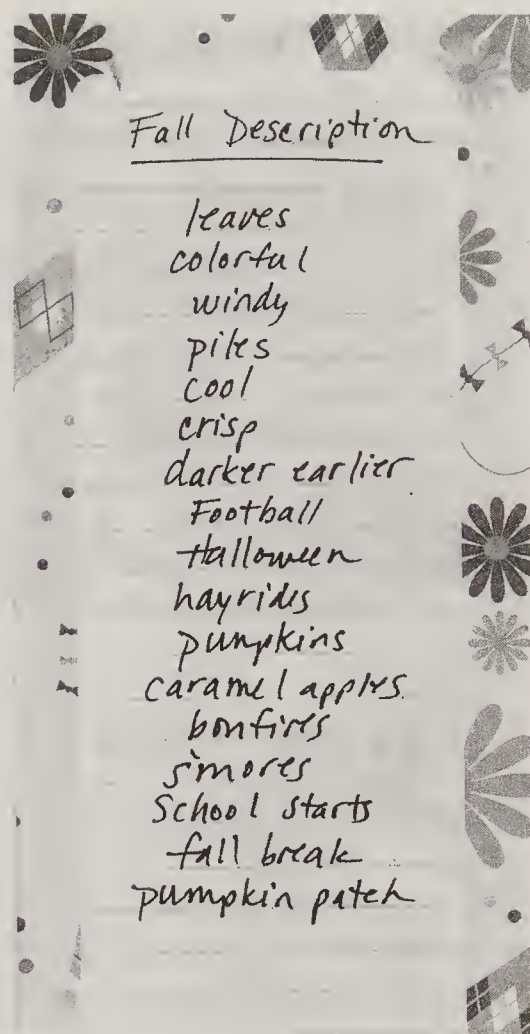 Fall Description
leaves
colorful
windy
piles
cool
crisp
darker earlier
Football
Halloween
hayrides
pumpkins
caramel apples
bonfires
s'mores
School starts
fall break
pumpkin patch